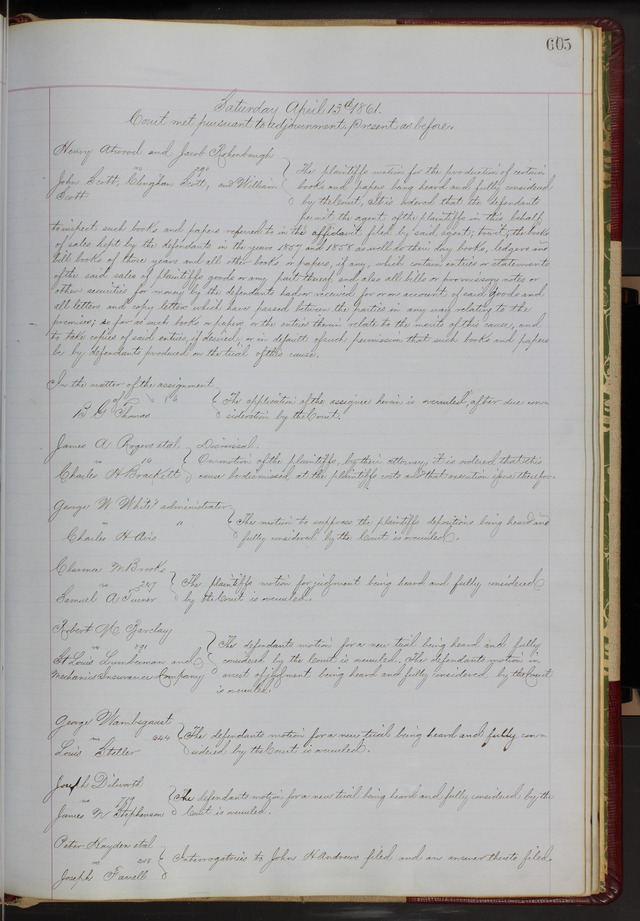 605
Saturday April 13th 1861.
Court met pursuant to adjournment, present as before.
Henry Atwood and Jacob
vs
John Scott, Clinghan Scott, and William
Scott
The plaintiffs motion for the production of certain
books and papers being heard and fully considered
by the Court, it is ordered that the defendants
permit the agent of the plaintiffs in this behalf,
to inspect such books and papers referred to in the affidavit filed by said agent, towit, the books
of sales kept by the defendants in the years 1857 and 1858 as well as their day books, ledgers and
bill books of those years and all other books or papers, if any, which contain entries or statements
of the said sales of plaintiffs goods or any part thereof and also all bills or promissory notes or
other securities for money by the defendants had or received for or on account of said goods and
all letters and copy letters which have passed between the parties in any way relating to the
premises; so far as such books or papers or the entries therein relate to the merits of this cause, and
to take copies of said entries, if desired, or in default of such permission that such books and papers
be by defendants produced on the trial of this cause.
In the matter of the assignment
of
B. G. Thomas
The application of the assignee herein is overruled, after due con-
sideration by the Court.
James A Rogers etal
vs 16
Charles H Brackett
Dismissal.
On motion of the plaintiffs, by their attorney, it is ordered that this
cause be dismissed at the plaintiffs costs and that execution issue therefor.
George W White administrator
vs
Charles H Avis
The motion to suppress the plaintiffs depositions being heard and
fully considered by the Court is overruled.
Clarence M Brooks
vs 247
Samuel A Turner
The plaintiffs motion for judgment being heard and fully considered
by the Court is overruled.
Robert M Barclay
vs
St Louis Lumberman and
Mechanics Insurance Company
The defendants motion for a new trial being heard and fully
considered by the Court is overruled. The defendants motion in
arrest of judgment being heard and fully considered by the Court
is overruled.
George Wambsganst
vs 244
Louis Steller
The defendants motion for a new trial being heard and fully con-
sidered by the Court is overruled.
Joseph Dilworth
vs
James W Stephenson
The defendants motion for a new trial being heard and fully considered by the
Court is overruled.
Peter Hayden etal
vs 208
Joseph Farrell
Interrogatories to John H Andrews filed and an answer thereto filed.